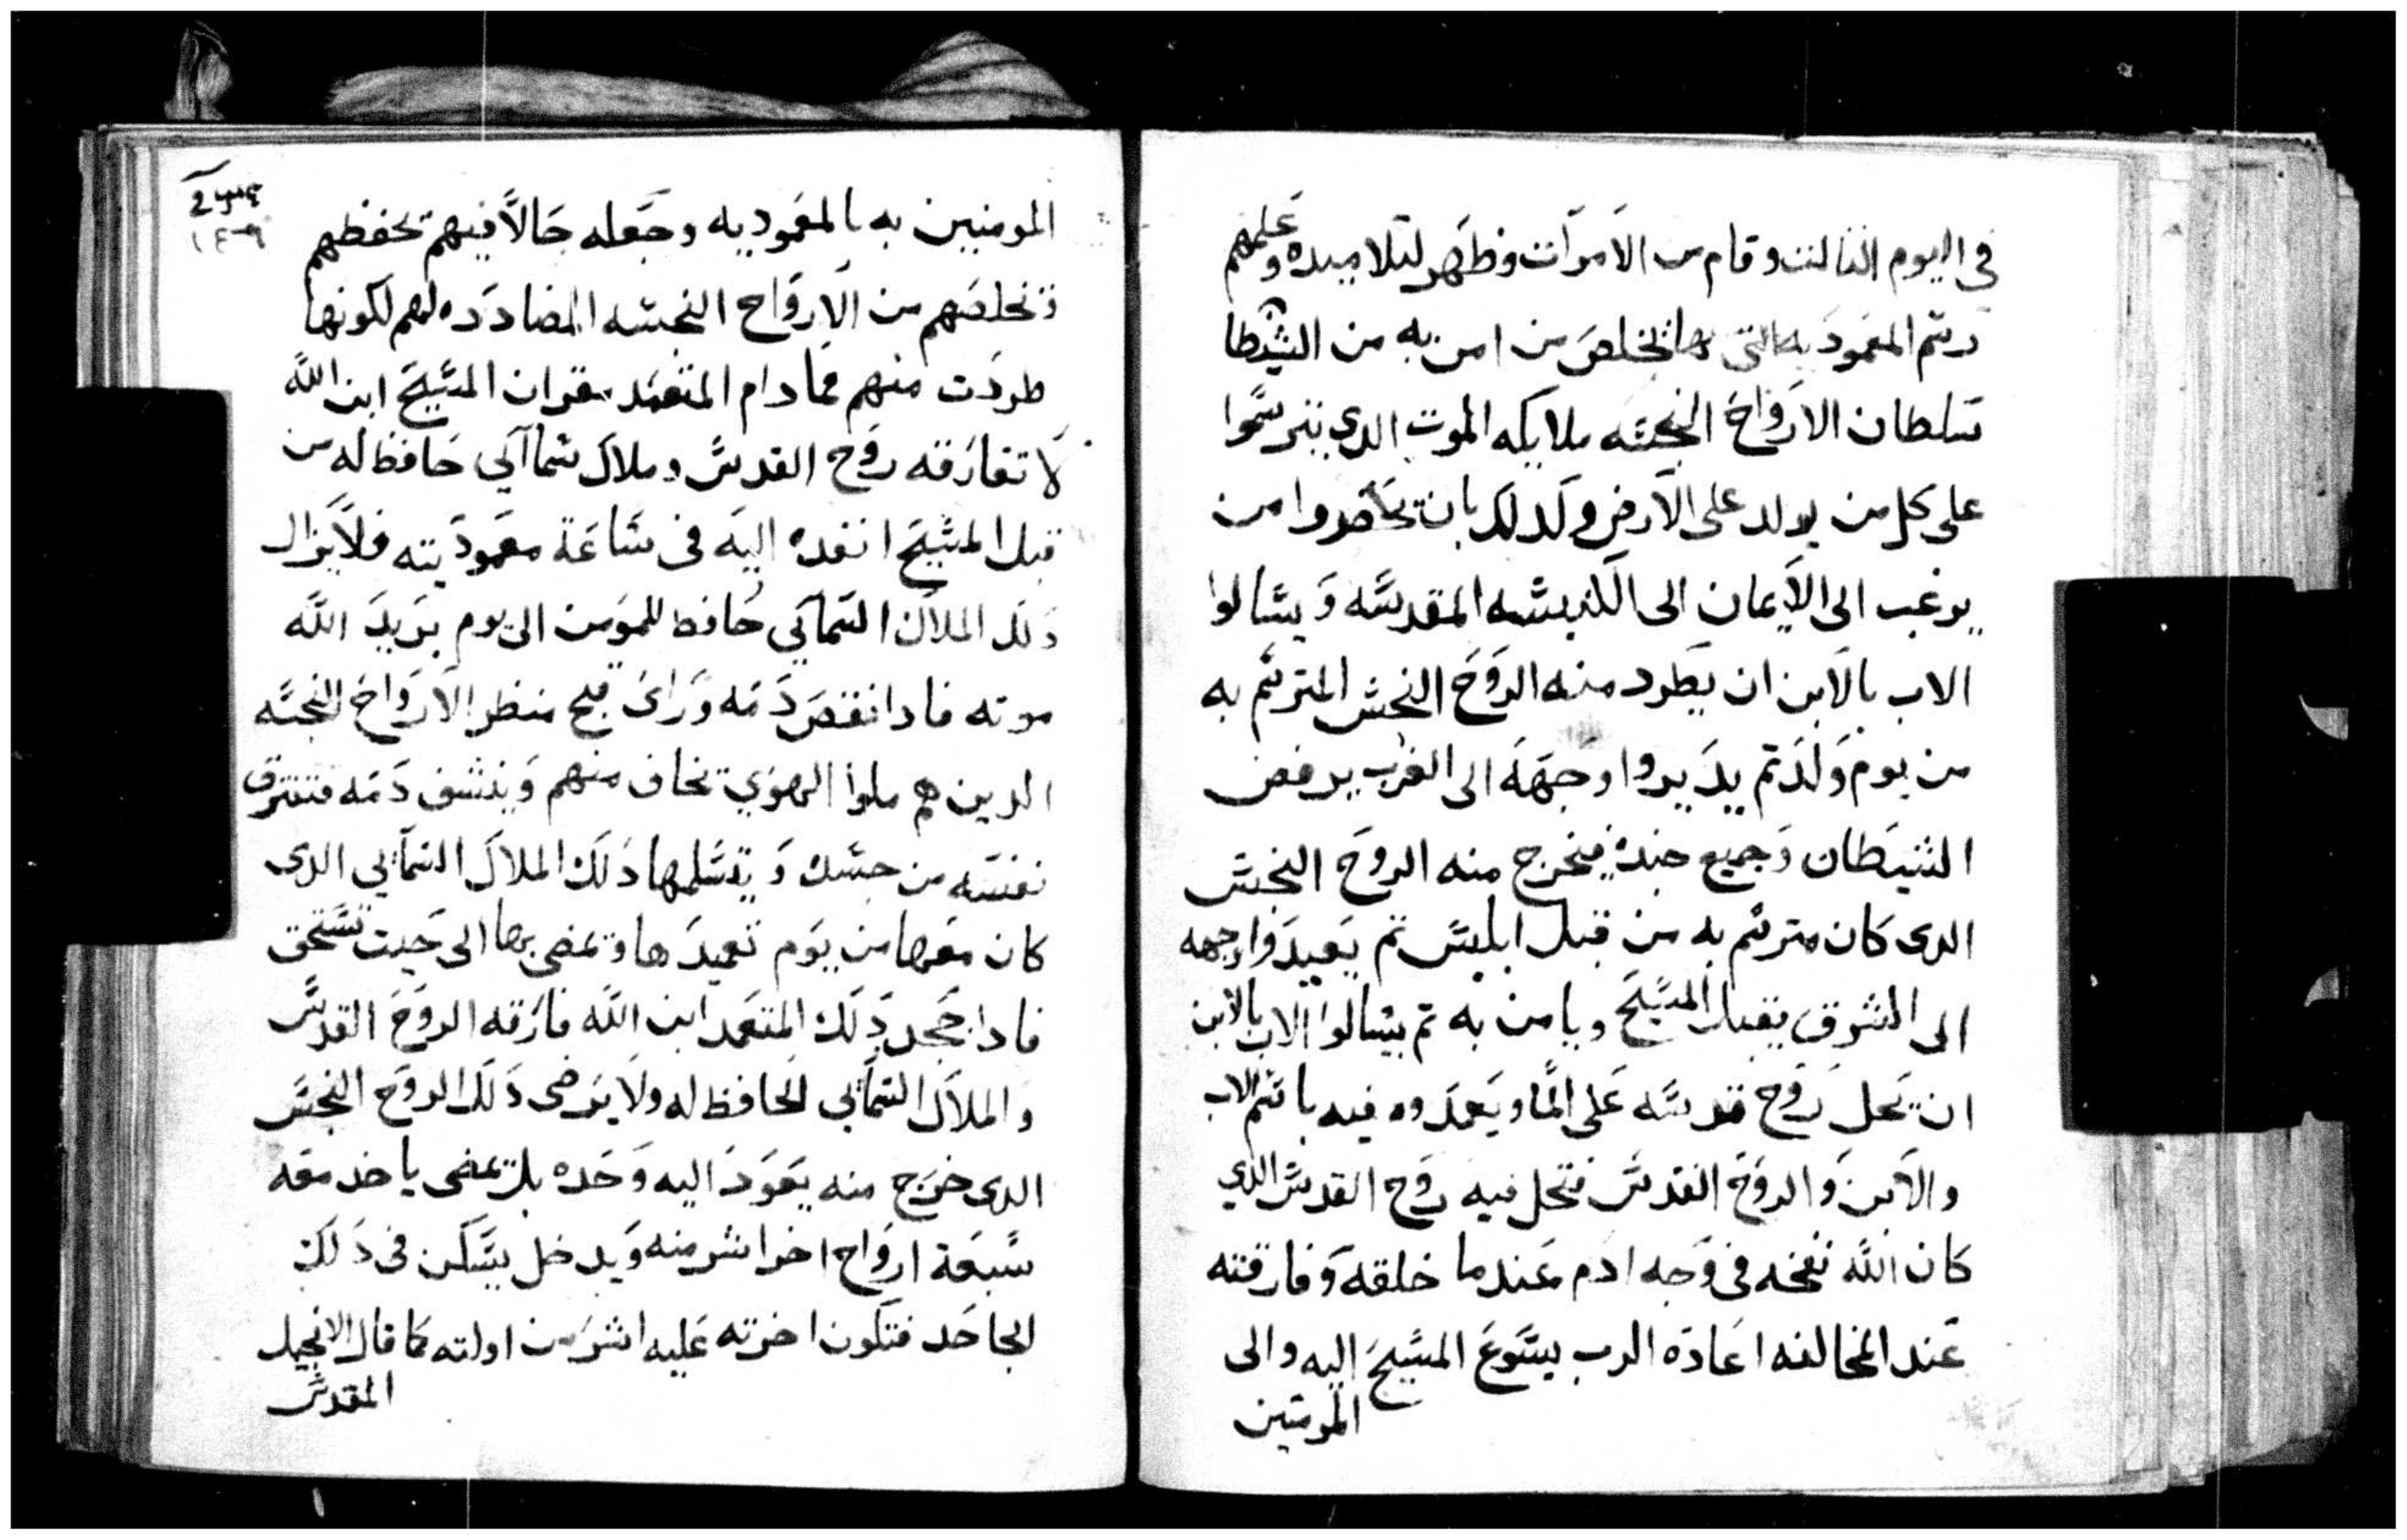 في اليوم الثالث وقام من الاموات وظهر لتلاميده وعلمهم
رسم المعموديه التي بها تخلص من امن به من الشيطا
سلطان الارواح النجسه ملايكه الموت الدي يترسموا
على كل من يولد على الارض ولدلك بان تحضروا من
يرغب الى الايمان الى الكنيسه المقدسه ويسالوا
الاب بالابن ان يطرد منه الروح النجس المترسم به
من يوم ولد تم يديروا وجهه الى الغرب يرفض
الشيطان وجميع جنده فيخرج منه الروح النجس
الدى كان مترسم به من قبل ابليس تم يعيدوا وجهه
الى الشرق يقبل المسيح ويامن به تم يسالوا الاب بالابن
ان تحل روح قدسه على الما ويعمدوه فيه باسم الاب
والابن والروح القدس فتحل فيه روح القدس الدي
كان الله نفخه في وجه ادم عندما خلقه وفارقته
عند المخالفه اعاده الرب يسوع المسيح اليه والى
المومنين
المومنين به بالمعموديه وجعله حالا فيهم تحفظهم
وتخلصهم من الارواح النجسه المضادده لهم لكونها
طردت منهم فما دام المتعمد يقر ان المسيح ابن الله
لا تفارقه روح القدس وملاك سماآي حافظ له من
قبل المسيح انفده اليه في ساعة معموديته فلا يزال
دلك الملاك السمآي حافظ للمومن الى يوم يريد الله
موته فادا نقص دمه وراى قبح منظر الارواح النجسه
الدين هم ملوا الهوي تخاف منهم وينشف دمه فتفترق
نفسه من جسده ويتسلمها دلك الملاك السمآيي الدى
كان معها من يوم تعميدها ويمضى بها الى حيت تستحق
فادا جحد دلك المتعمد ابن الله فارقه الروح القدس
والملاك السمآيي الحافظ له ولا يرضى دلك الروح النجس
الدى خرج منه يعود اليه وحده بل يمضى ياخد معه
سبعة ارواح اخر اشر منه ويدخل يسكن في دلك
الجاحد فتكون اخرته عليه اشر من اولته كما قال الانجيل
المقدس